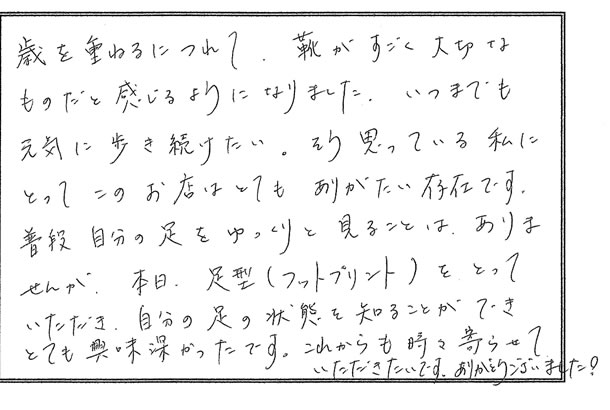 歳を重ねるにつれて、靴がすごく大切な
ものだと感じるようになりました。いつまでも
元気に歩き続けたい。そう思っている私に
とってこのお店はとてもありがたい存在です。
普段自分の足をゆっくりと見ることは、ありま
せんが、本日、足型(フットプリント)をとって
いただき、自分の足の状態を知ることができ
とても興味深かったです。これからも時々寄らせて
いただきたいです。ありがとうございました!